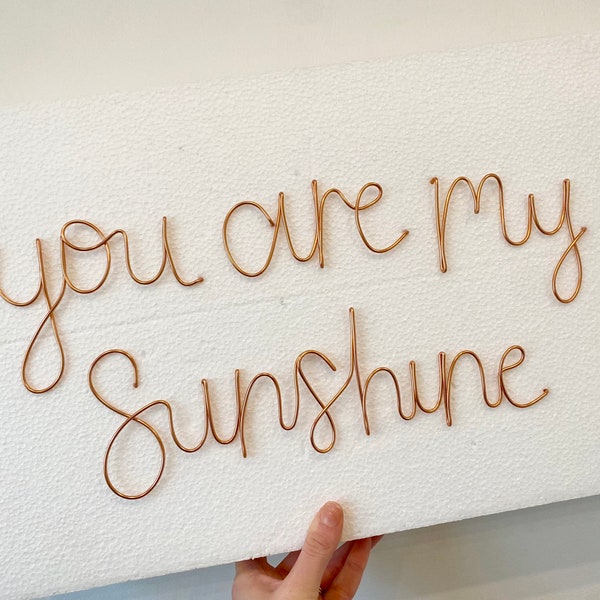 you are my
Sunshine